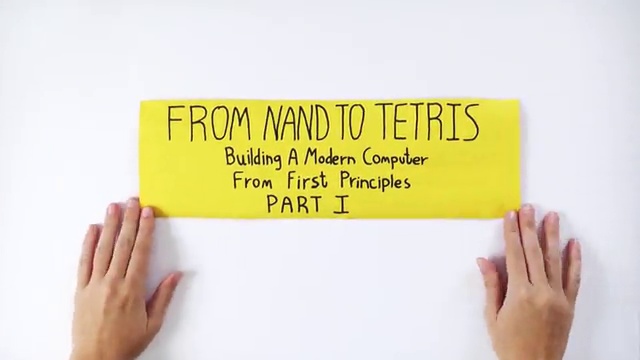 FROM NAND TO TETRIS
Building A Modern Computer
From First Principles
PART I